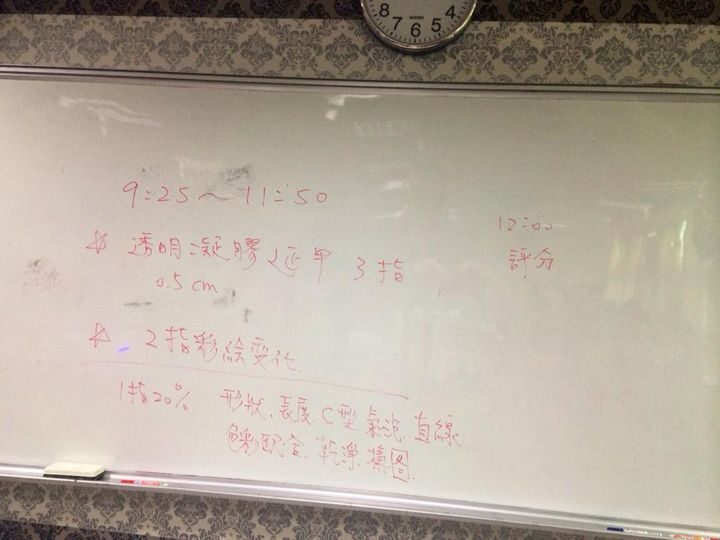 8 7 6 5 4
9:25~11:50
12:00
☆ 透明凝膠延甲 3指
評分
0.5 cm
☆ 2指彩繪变化.
1指20% 形狀、長度 C型 氣泡 直線
色彩配合、乾淨 構图.